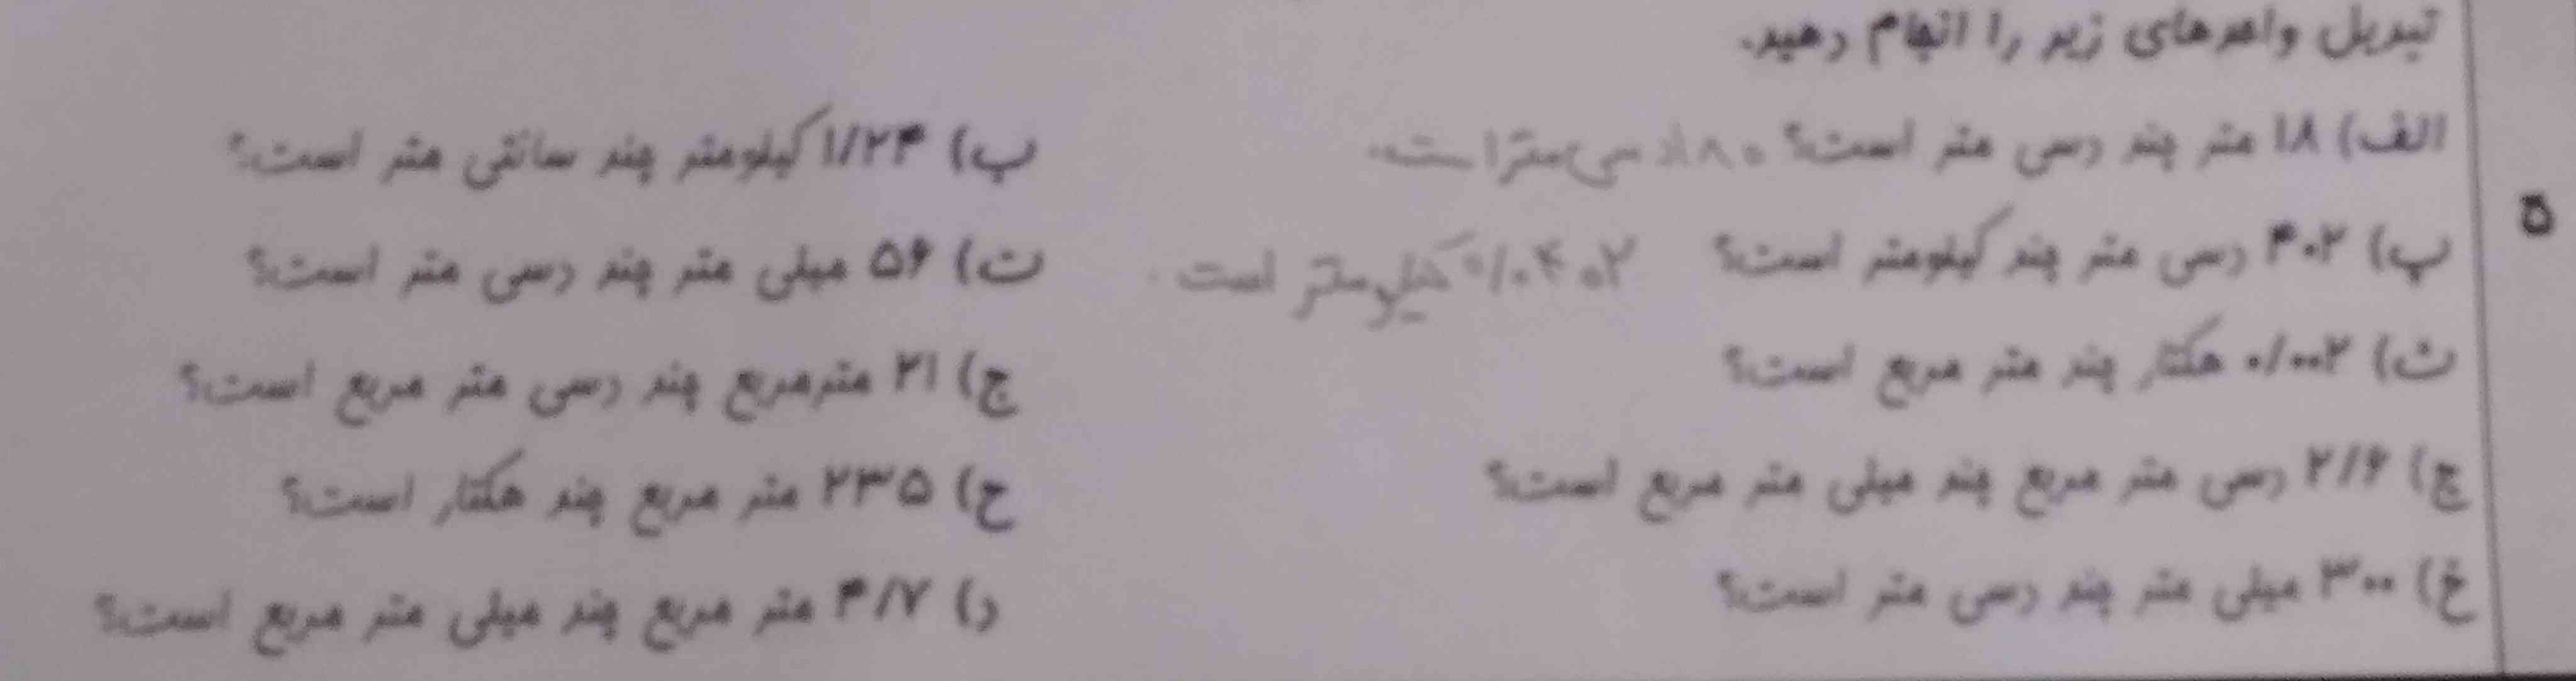 تبدیل واحدهای زیر را انجام دهید.
الف) ۱۸ متر چند دسی متر است؟ ۱۸۰ دسی متر است. ب) ۱/۲۴ کیلومتر چند سانتی متر است؟
۵
پ) ۴۰۲ دسی متر چند کیلومتر است؟ ۰/۰۴۰۲ کیلومتر است. ت) ۵۶ میلی متر چند دسی متر است؟
ث) ۰/۰۰۲ هکتار چند متر مربع است؟ ج) ۲۱ مترمربع چند دسی متر مربع است؟
چ) ۲/۶ دسی متر مربع چند میلی متر مربع است؟ ح) ۲۳۵ متر مربع چند هکتار است؟
خ) ۳۰۰ میلی متر چند دسی متر است؟ د) ۴/۷ متر مربع چند میلی متر مربع است؟